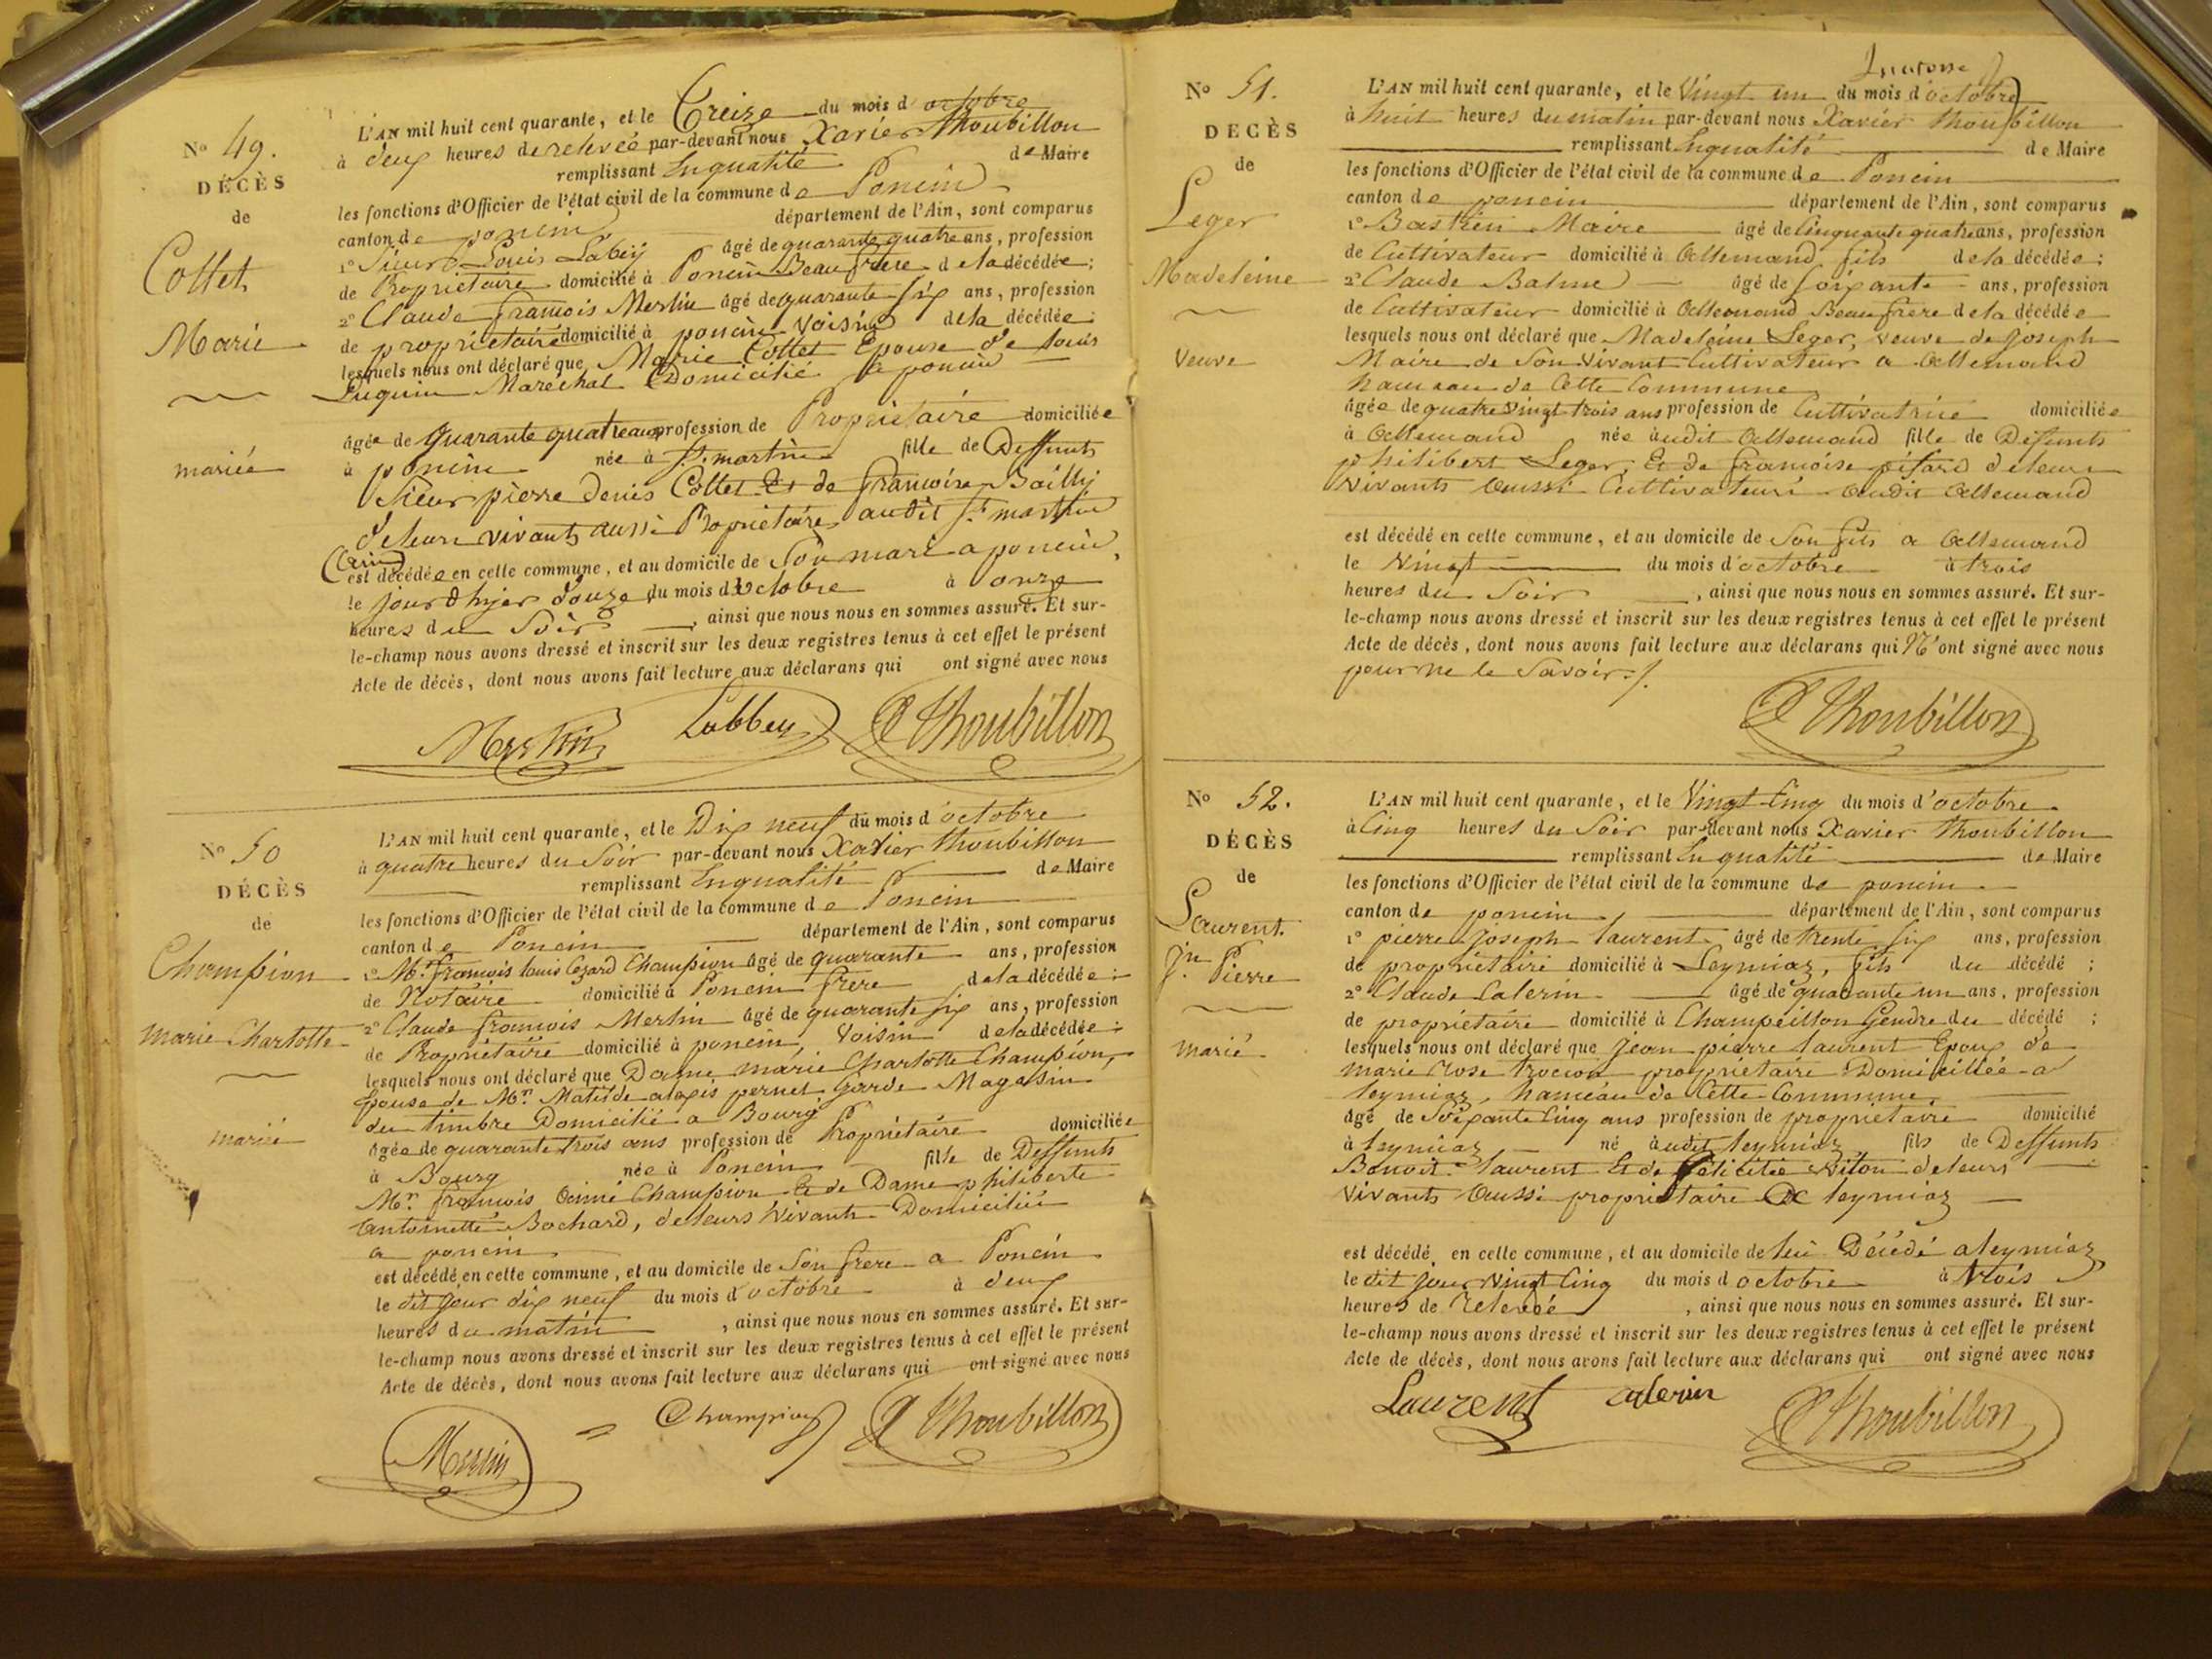 N° 49.
DÉCÈS
de
Collet
Marie
mariée
L'AN mil huit cent quarante, et le Treize du mois d'octobre
à deux heures de relevée par-devant nous Xavier Thoubillon
remplissant En qualité de Maire
les fonctions d'Officier de l'état civil de la commune de Poncin
canton de poncin département de l'Ain, sont comparus
1° Sieur Louis Labey âgé de quarante quatre ans, profession
de Propriétaire domicilié à Poncin Beau frere de la décédée;
2° Claude françois Merlin âgé de quarante six ans, profession
de propriétaire domicilié à poncin voisin de la décédée;
lesquels nous ont déclaré que Marie Collet Epouse de Louis
Maréchal Domicilié a poncin
âgée de quarante quatre ans profession de Propriétaire domiciliée
à poncin née à St. martin fille de Deffunts
Sieur pierre Denis Collet Et de francoise Bailly
de leur vivants aussi Propriétaires audit St. martin
est décédée en cette commune, et au domicile de Son mari a poncin,
le jour d'hyer douze du mois d'octobre à onze
heures du Soir, ainsi que nous nous en sommes assuré. Et sur-
le-champ nous avons dressé et inscrit sur les deux registres tenus à cet effet le présent
Acte de décès, dont nous avons fait lecture aux déclarans qui ont signé avec nous
Merlin Labbey Thoubillon
N° 50
DÉCÈS
de
Champion
Marie Charlotte
mariée
L'AN mil huit cent quarante, et le Dix neuf du mois d'octobre
à quatre heures du Soir par-devant nous Xavier Thoubillon
remplissant En qualité de Maire
les fonctions d'Officier de l'état civil de la commune de Poncin
canton de Poncin département de l'Ain, sont comparus
1° Mr. françois Louis Cezard Champion âgé de quarante ans, profession
de Notaire domicilié à Poncin frère de la décédée;
2° Claude françois Merlin âgé de quarante six ans, profession
de Propriétaire domicilié à poncin, Voisin de la décédée;
lesquels nous ont déclaré que Dame marie Charlotte Champion,
Epouse de Mr. Matilde alexis pernet garde Magasin
du timbre Domicilié a Bourg
âgée de quarante trois ans profession de Propriétaire domiciliée
à Bourg née à Poncin fille de Deffunts
Mr. françois aimé Champion Et de Dame philiberte
antoinette Bochard, de leurs vivants Domiciliés
a poncin
est décédé en cette commune, et au domicile de Son frere a Poncin
le dit jour dix neuf du mois d'octobre à deux
heures du matin, ainsi que nous nous en sommes assuré. Et sur-
le-champ nous avons dressé et inscrit sur les deux registres tenus à cet effet le présent
Acte de décès, dont nous avons fait lecture aux déclarans qui ont signé avec nous
Merlin Champion Thoubillon
N° 51.
DECÈS
de
Leger
Madeleine
Veuve
L'AN mil huit cent quarante, et le Vingt un du mois d'octobre
à huit heures du matin par-devant nous Xavier Thoubillon
remplissant En qualité de Maire
les fonctions d'Officier de l'état civil de la commune de Poncin
canton de poncin département de l'Ain, sont comparus
1° Bastien Maire âgé de Cinquante quatre ans, profession
de Cultivateur domicilié à Allemand fils de la décédée;
2° Claude Balme âgé de soixante ans, profession
de Cultivateur domicilié à Allemand Beau frere de la décédée
lesquels nous ont déclaré que Madeleine Leger, veuve de Joseph
Maire de Son vivant Cultivateur a Allemand
hameau de Cette Commune
âgée de quatre vingt trois ans profession de Cultivatrice domiciliée
à Allemand née audit Allemand fille de Défunts
philibert Leger, Et de francoise pitard de leurs
vivants aussi Cultivateurs audit Allemand
est décédé en cette commune, et au domicile de Son fils a Allemand
le Vingt du mois d'octobre à trois
heures du Soir, ainsi que nous nous en sommes assuré. Et sur-
le-champ nous avons dressé et inscrit sur les deux registres tenus à cet effet le présent
Acte de décès, dont nous avons fait lecture aux déclarans qui N'ont signé avec nous
pour ne le Savoir./.
Thoubillon
N° 52.
DÉCÈS
de
Laurent
Jn Pierre
marié
L'AN mil huit cent quarante, et le Vingt Cinq du mois d'octobre
à Cinq heures du Soir par-devant nous Xavier Thoubillon
remplissant En qualité de Maire
les fonctions d'Officier de l'état civil de la commune de poncin
canton de poncin, département de l'Ain, sont comparus
1° pierre Joseph Laurent âgé de trente six ans, profession
de propriétaire domicilié à Leymiaz, fils du décédé;
2° Claude Calerin âgé de quarante un ans, profession
de propriétaire domicilié à Champeillon Gendre du décédé;
lesquels nous ont déclaré que Jean pierre Laurent Epoux de
marie Rose propriétaire Domiciliée a
leymiaz, hameau de Cette Commune.
âgé de Soixante Cinq ans profession de propriétaire domicilié
à leymiaz né audit leymiaz fils de Deffunts
Benoit Laurent Et de Félicitée de leurs
vivants aussi propriétaire De leymiaz
est décédé en cette commune, et au domicile de lui Décédé a leymiaz
le dit jour vingt Cinq du mois d'octobre à trois
heures de relevée, ainsi que nous nous en sommes assuré. Et sur-
le-champ nous avons dressé et inscrit sur les deux registres tenus à cet effet le présent
Acte de décès, dont nous avons fait lecture aux déclarans qui ont signé avec nous
Laurent Calerin Thoubillon